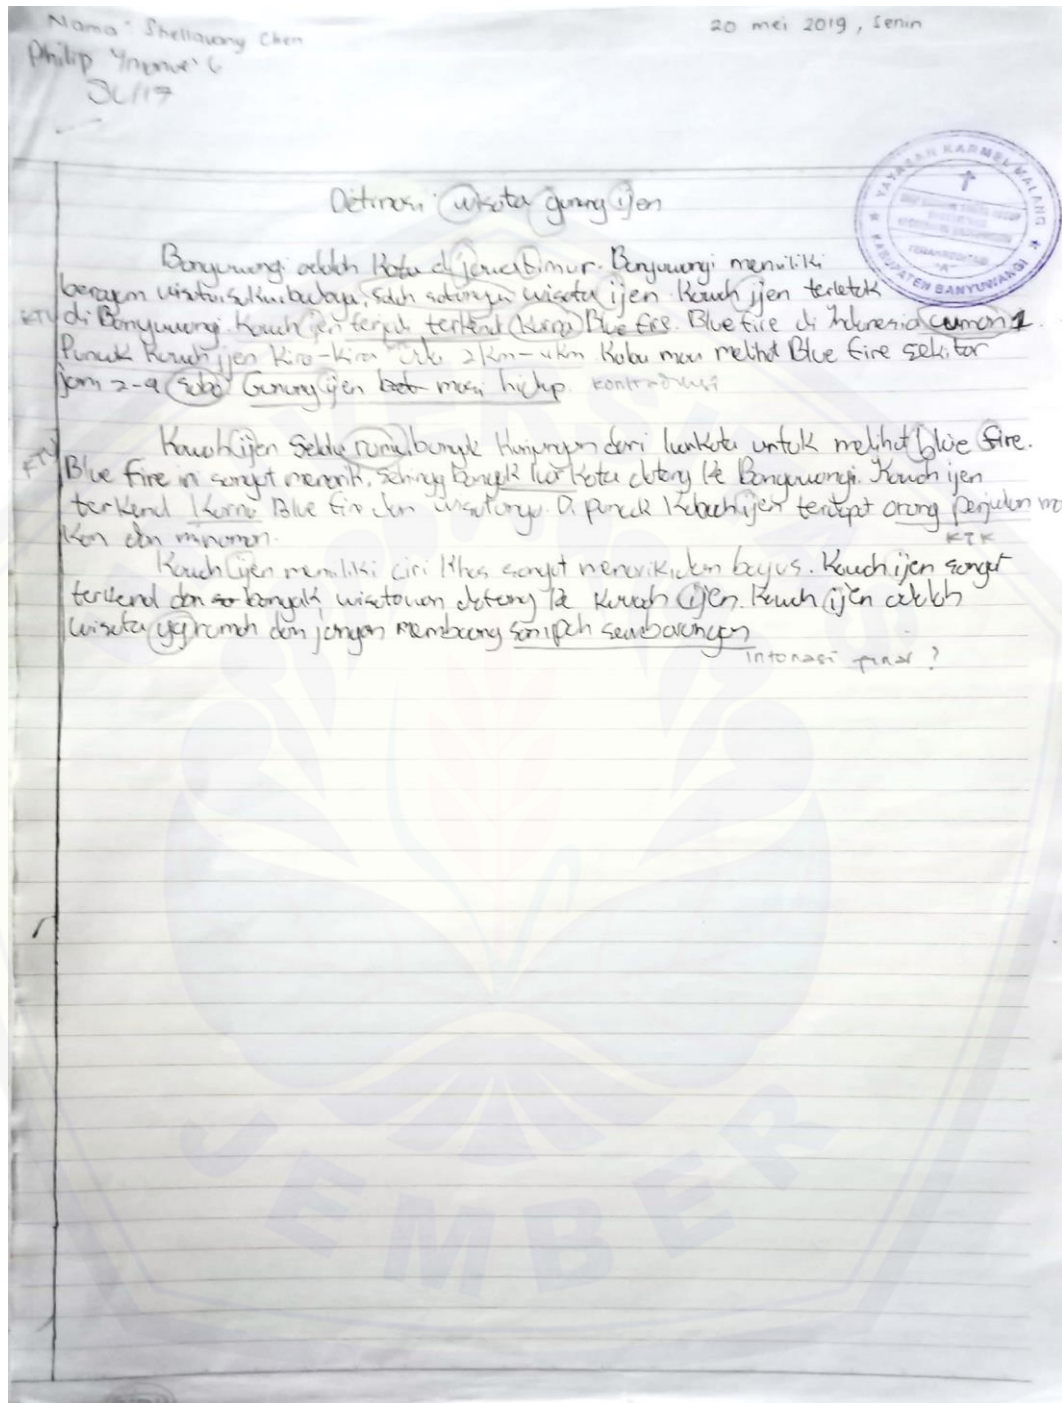 Nama : Shellawang Chen
20 mei 2019, Senin
Philip
Detinasi wisata gunung ijen
Banyuwangi adalah Kota di jawa timur. Banyuwangi memiliki
beragam wisata, suku, budaya, salah satunya wisata ijen. Kawah ijen terletak
KTV di Banyuwangi. Kawah ijen terkenal karna Blue fire. Blue fire di Indonesia cuman 1.
Puncak Kawah ijen Kira-kira 2km-4km. Kalau mau melihat Blue fire sekitar
jam 2-4 Gunung ijen masi hidup. kontradiksi
KTV Kawah ijen Selalu rame banyak Kunjungan dari luar kota untuk melihat blue fire.
Blue fire ini sangat menarik, sehingg banyak luar kota datang ke Banyuwangi. Kawah ijen
terkenal karna Blue fire dan wisatanya. Di puncak Kawah ijen terdapat orang penjualan ma
kan dan minuman.
KTK
Kawah ijen memiliki ciri khas sangat menarik dan bagus. Kawah ijen sangat
terkenal dan banyak wisatawan datang ke Kawah ijen. Kawah ijen adalah
wisata yg ramah dan jangan membuang sampah sembarangan
intonasi final ?
YAYASAN KARMEL MALANG
TERAKREDITASI
"A"
KABUPATEN BANYUWANGI
JEMBER